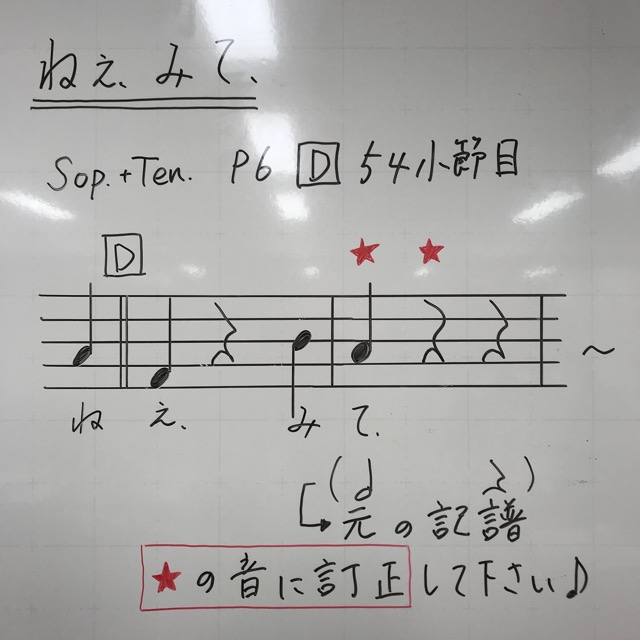 ねぇ、みて、
Sop.+Ten. P6 D 54小節目
★ ★
D
ね え、 み て、
(𝅗𝅥 𝄽)
元の記譜
★の音に訂正して下さい♪